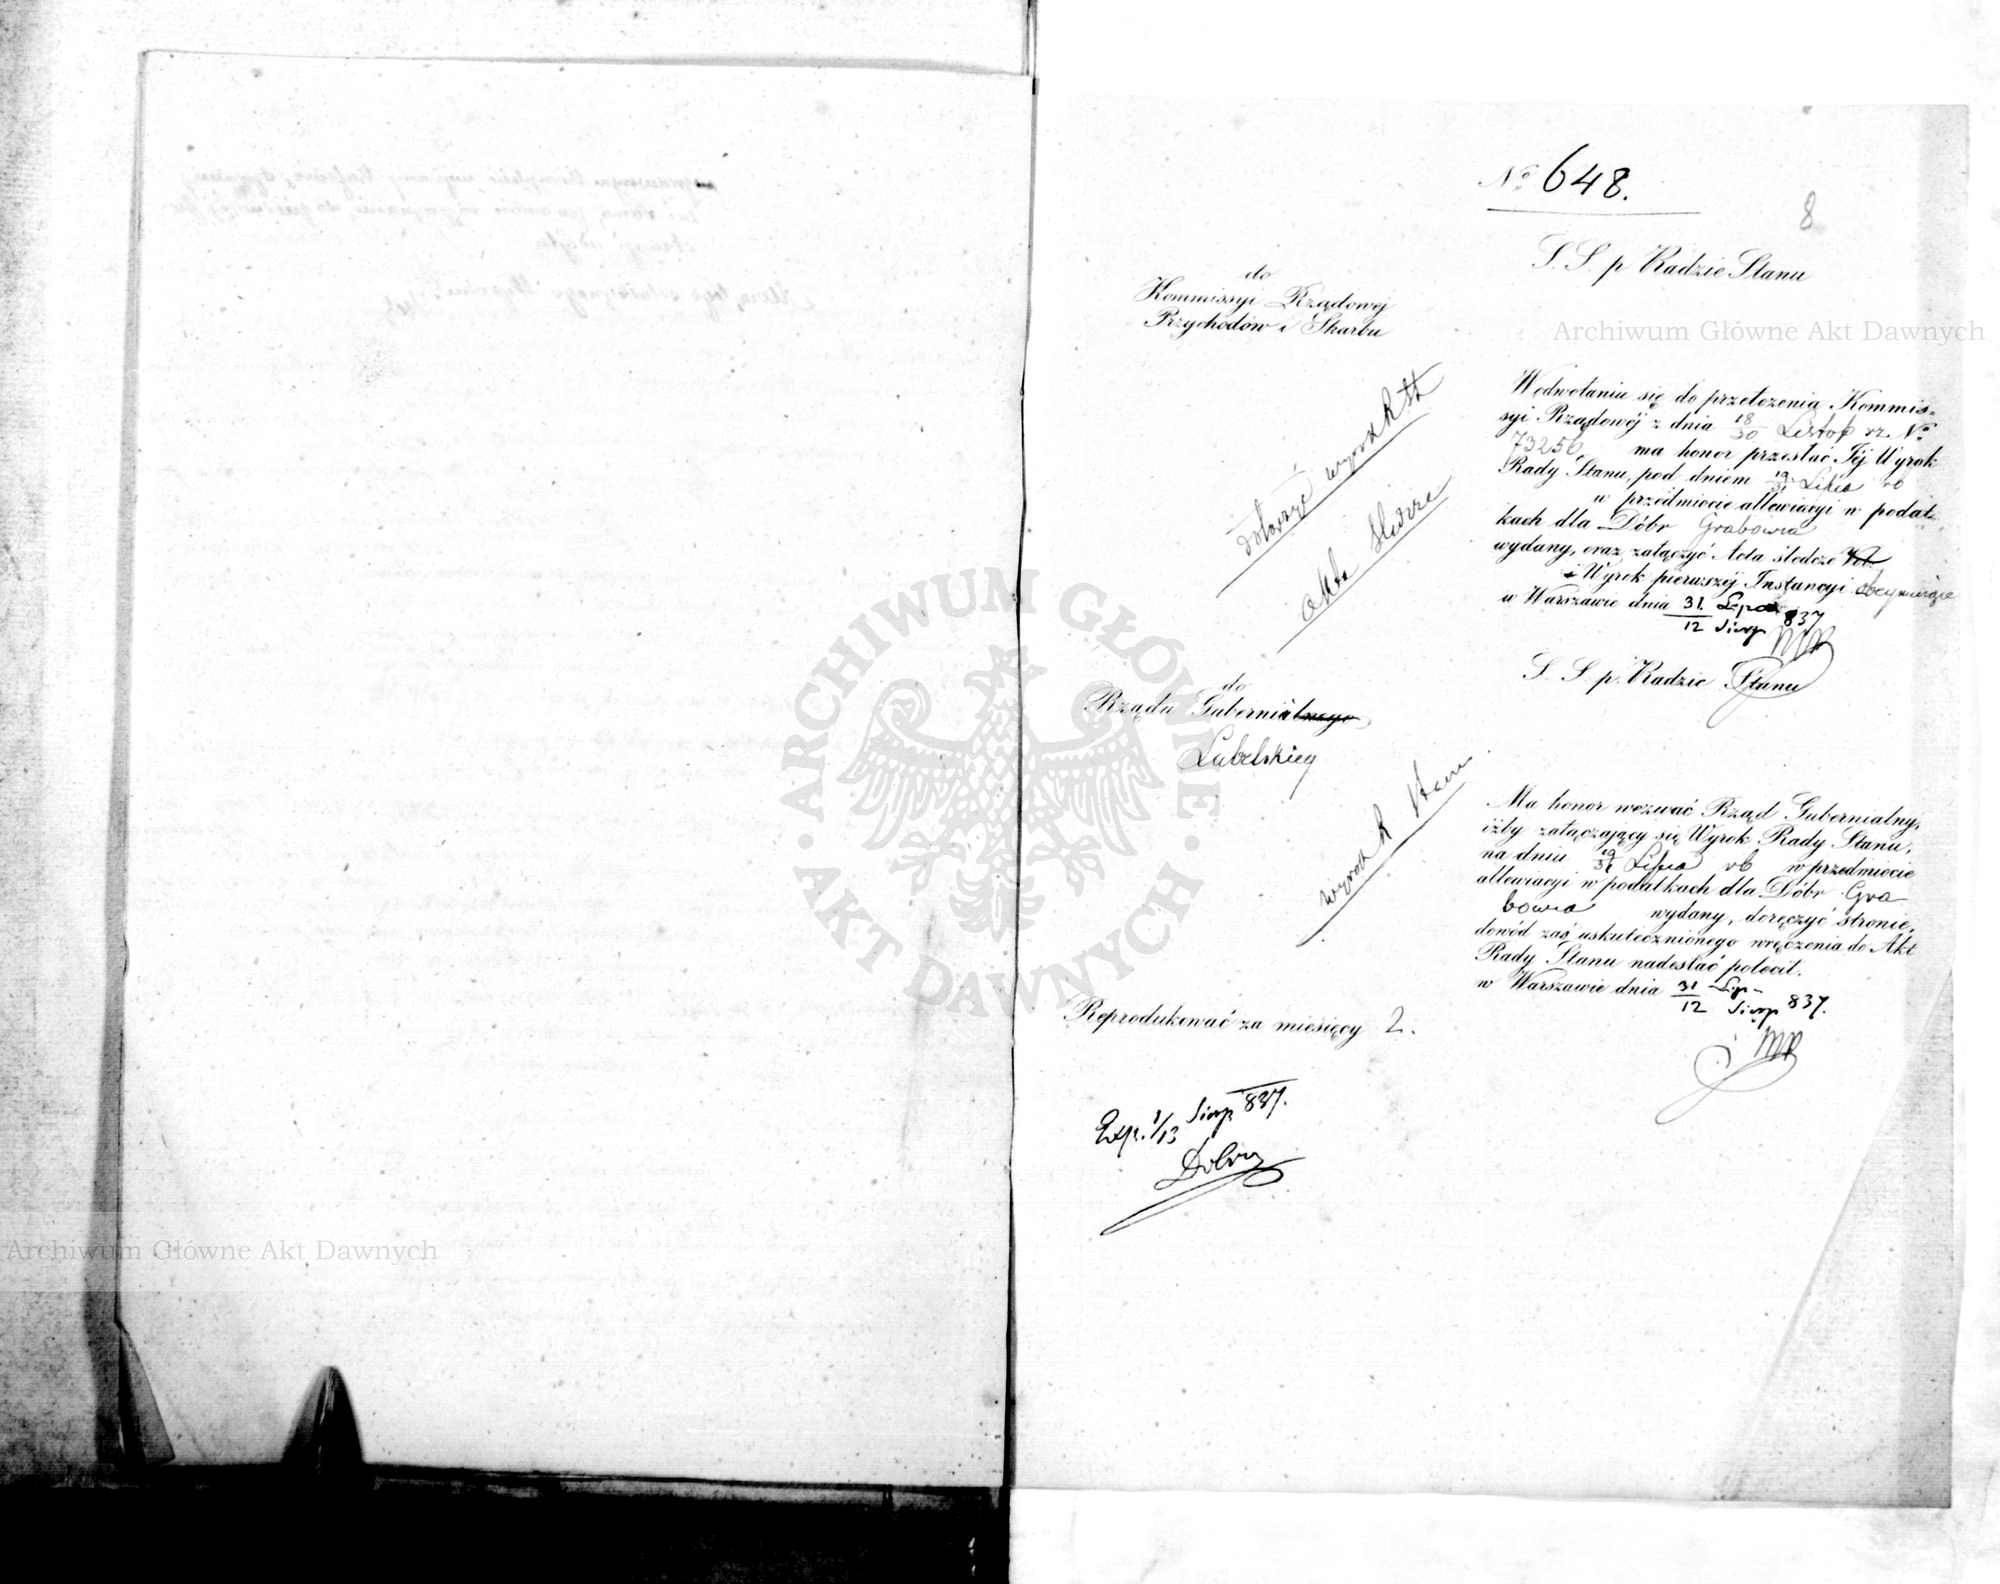 No 648.
8
S. S. p Radzie Stanu
do
Kommissyi Rządowej
Przychodów i Skarbu
Archiwum Główne Akt Dawnych
W odwołaniu się do przełożenia Kommis=
syi Rządowéj z dnia 18/30 Listop rz. No
73256 ma honor przesłać Jéj Wyrok
Rady Stanu, pod dniem 19/31 Lipca rb
w przedmiocie allewiacyi w podat=
kach dla Dóbr Grabowia
wydany, oraz załączyć Acta śledcze Vol.
i Wyrok pierwszéj Instancyi obejmujące
w Warszawie dnia 31. Lipca / 12 Sierp 837
S. S. p. Radzie Stanu
dołączyć wyrok R St
akta śledcze
do
Rządu Gubernialnego
Lubelskiey
wyrok R Stanu
Ma honor wezwać Rząd Gubernialny,
iżby załączający się Wyrok Rady Stanu,
na dniu 19/31 Lipca rb w przedmiocie
allewiacyi w podatkach dla Dóbr Gra
bowia wydany, doręczyć stronie,
dowód zaś uskutecznionego wręczenia do Akt
Rady Stanu nadesłać polecił.
w Warszawie dnia 31 Lip / 12 Sierp 837.
Reprodukować za miesięcy 2.
Exp. 1/13 Sierp 837.
ARCHIWUM GŁÓWNE AKT DAWNYCH
Archiwum Główne Akt Dawnych